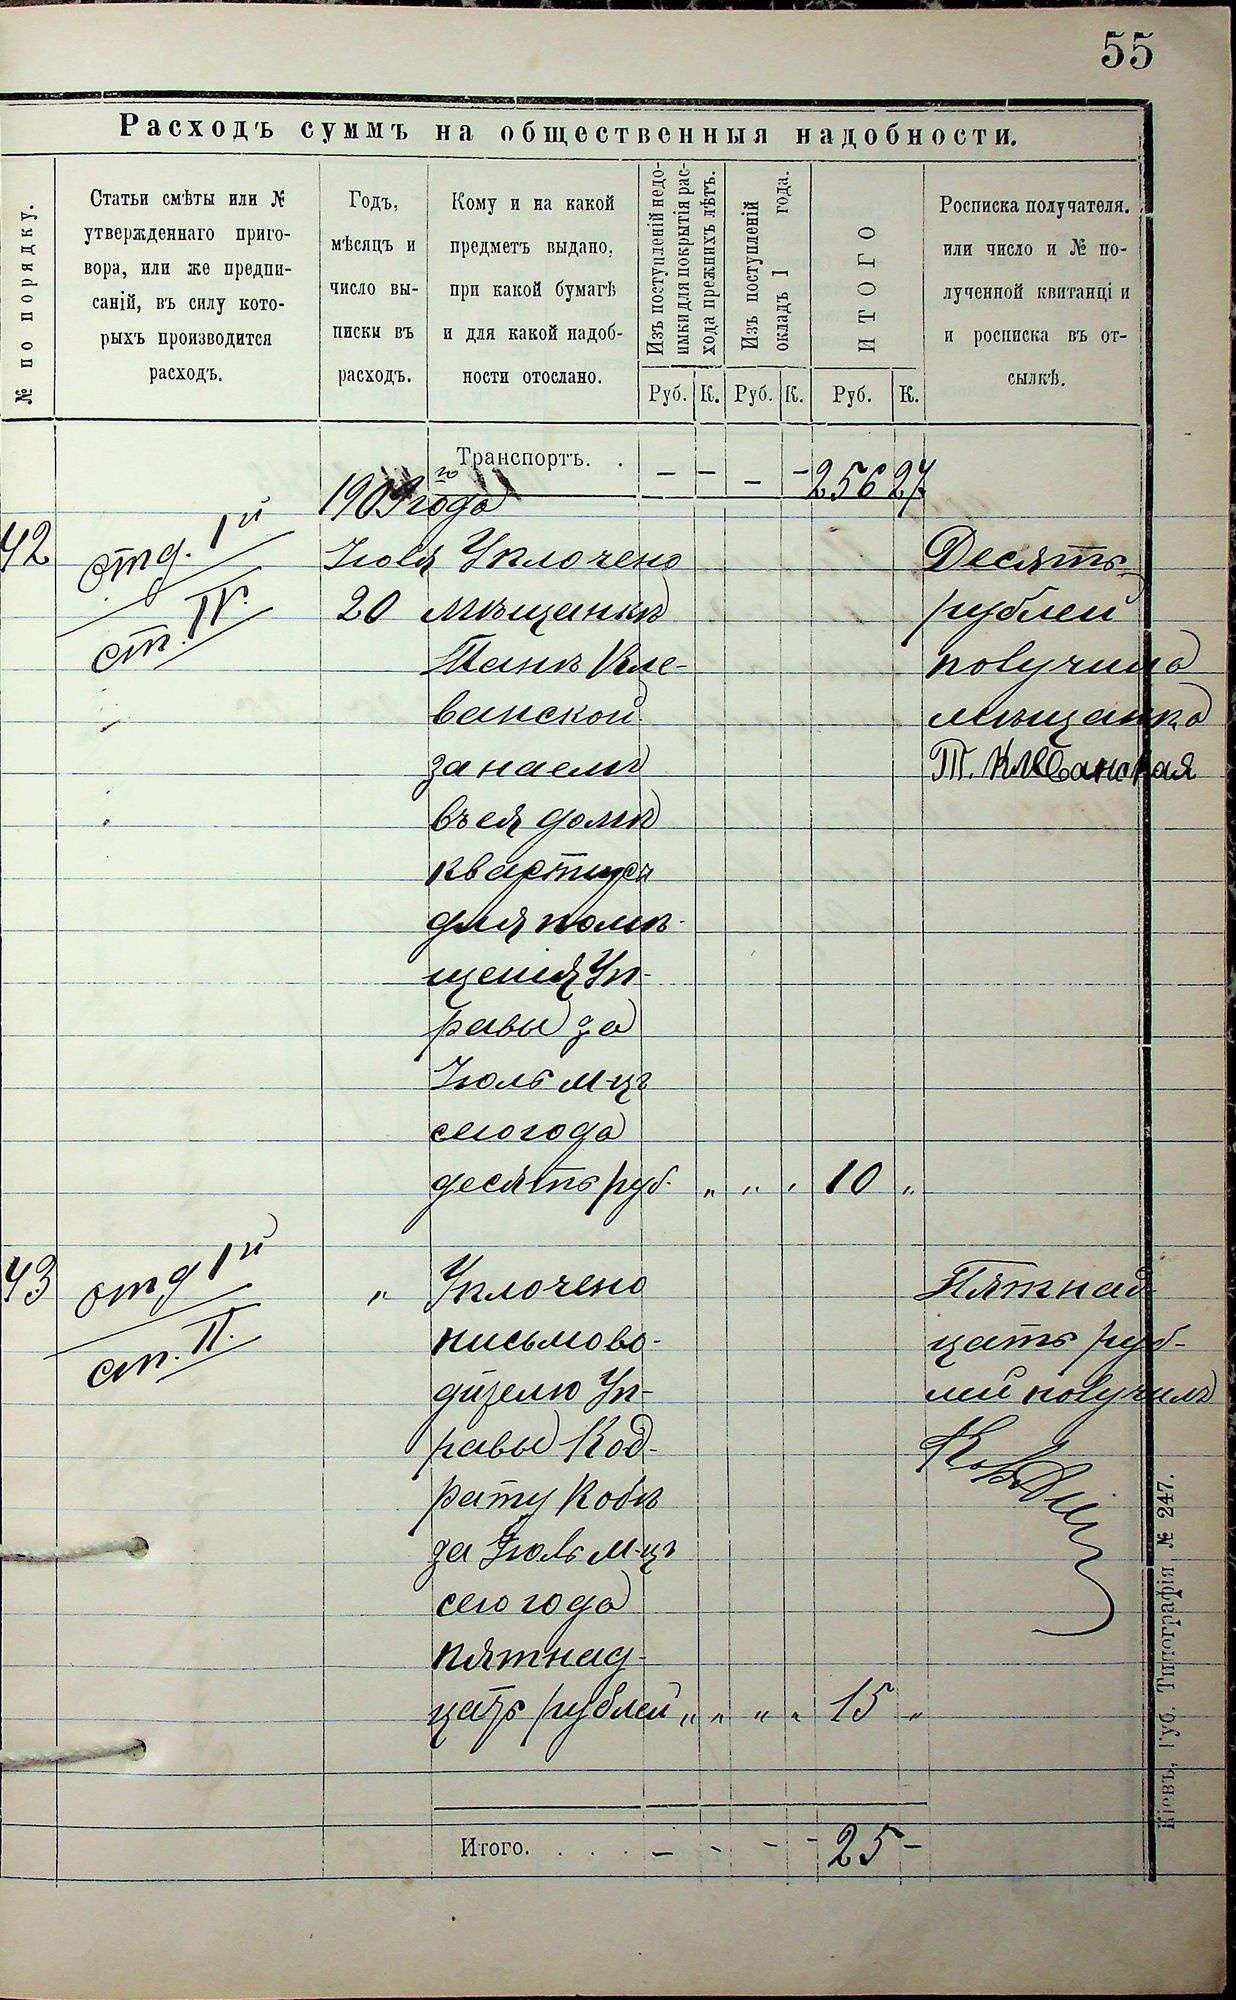 55
Расходъ суммъ на общественныя надобности.
№ по порядку.
Статьи смѣты или №
утвержденнаго приго-
вора, или же предпи-
саній, въ силу кото-
рыхъ производится
расходъ.
Годъ,
мѣсяцъ и
число вы-
писки въ
расходъ.
Кому и на какой
предметъ выдано,
при какой бумагѣ
и для какой надоб-
ности отослано.
Изъ поступленій недо-
имки для покрытія рас-
хода прежнихъ лѣтъ.
Изъ поступленій
окладъ 1 года.
ИТОГО
Росписка получателя.
или число и № по-
лученной квитанці и
и росписка въ от-
сылкѣ.
Руб. К. Руб. К. Руб. К.
Транспортъ. . – – – – 256 27
1909 го года
42
отд. 1й
ст. IV.
Іюля
20
Уплочено
мѣщанкѣ
Танѣ Кле-
ванской
за наемъ
въ ея домѣ
квартиры
для помѣ-
щенія Уп-
равы за
Іюль м-цъ
сего года
десять руб. „ „ „ 10 „
Десять
рублей
получила
мѣщанка
Т. Клеванская
43
отд 1й
ст. II.
„
Уплочено
письмово-
дителю Уп-
равы Код-
рату Кобѣ
за Іюль м-цъ
сего года
пятнад-
цать рублей „ „ „ „ 15 „
Пятнад-
цать руб-
лей получилъ
Итого. . . . . – - - - 25 –
Кіевъ, Губ. Типографія № 247.